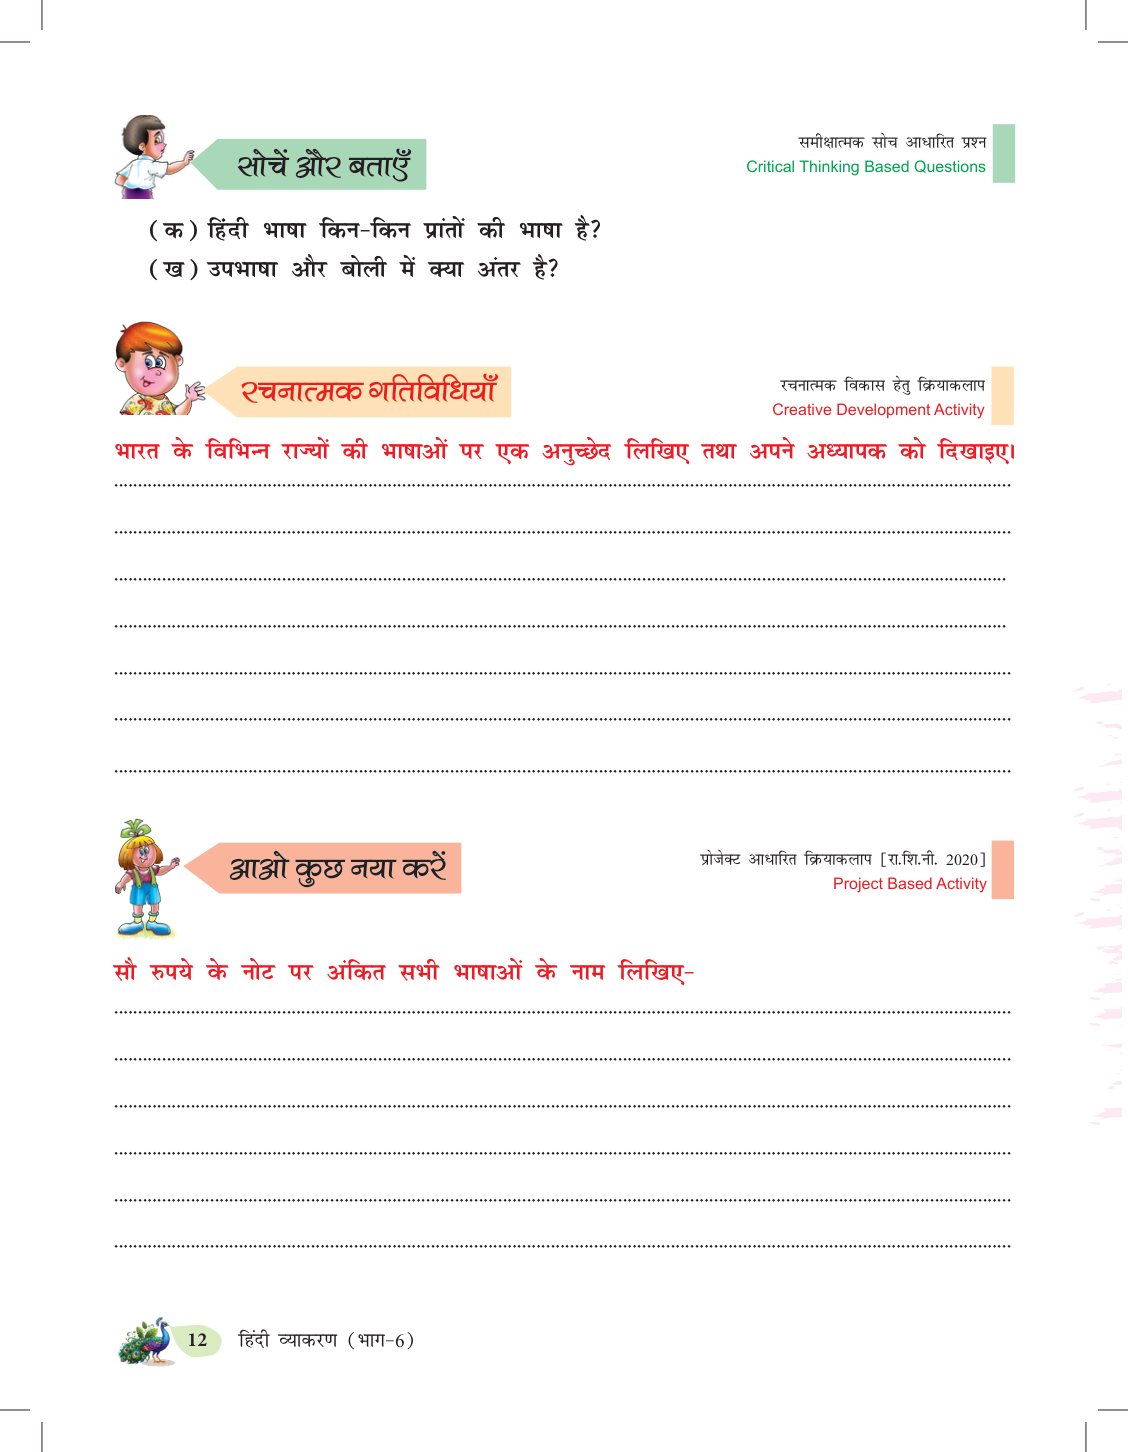 सोचें और बताएँ
समीक्षात्मक सोच आधारित प्रश्न
Critical Thinking Based Questions
(क) हिंदी भाषा किन-किन प्रांतों की भाषा है?
(ख) उपभाषा और बोली में क्या अंतर है?
रचनात्मक गतिविधियाँ
रचनात्मक विकास हेतु क्रियाकलाप
Creative Development Activity
भारत के विभिन्न राज्यों की भाषाओं पर एक अनुच्छेद लिखिए तथा अपने अध्यापक को दिखाइए।
आओ कुछ नया करें
प्रोजेक्ट आधारित क्रियाकलाप [रा.शि.नी. 2020]
Project Based Activity
सौ रुपये के नोट पर अंकित सभी भाषाओं के नाम लिखिए-
12 हिंदी व्याकरण (भाग-6)